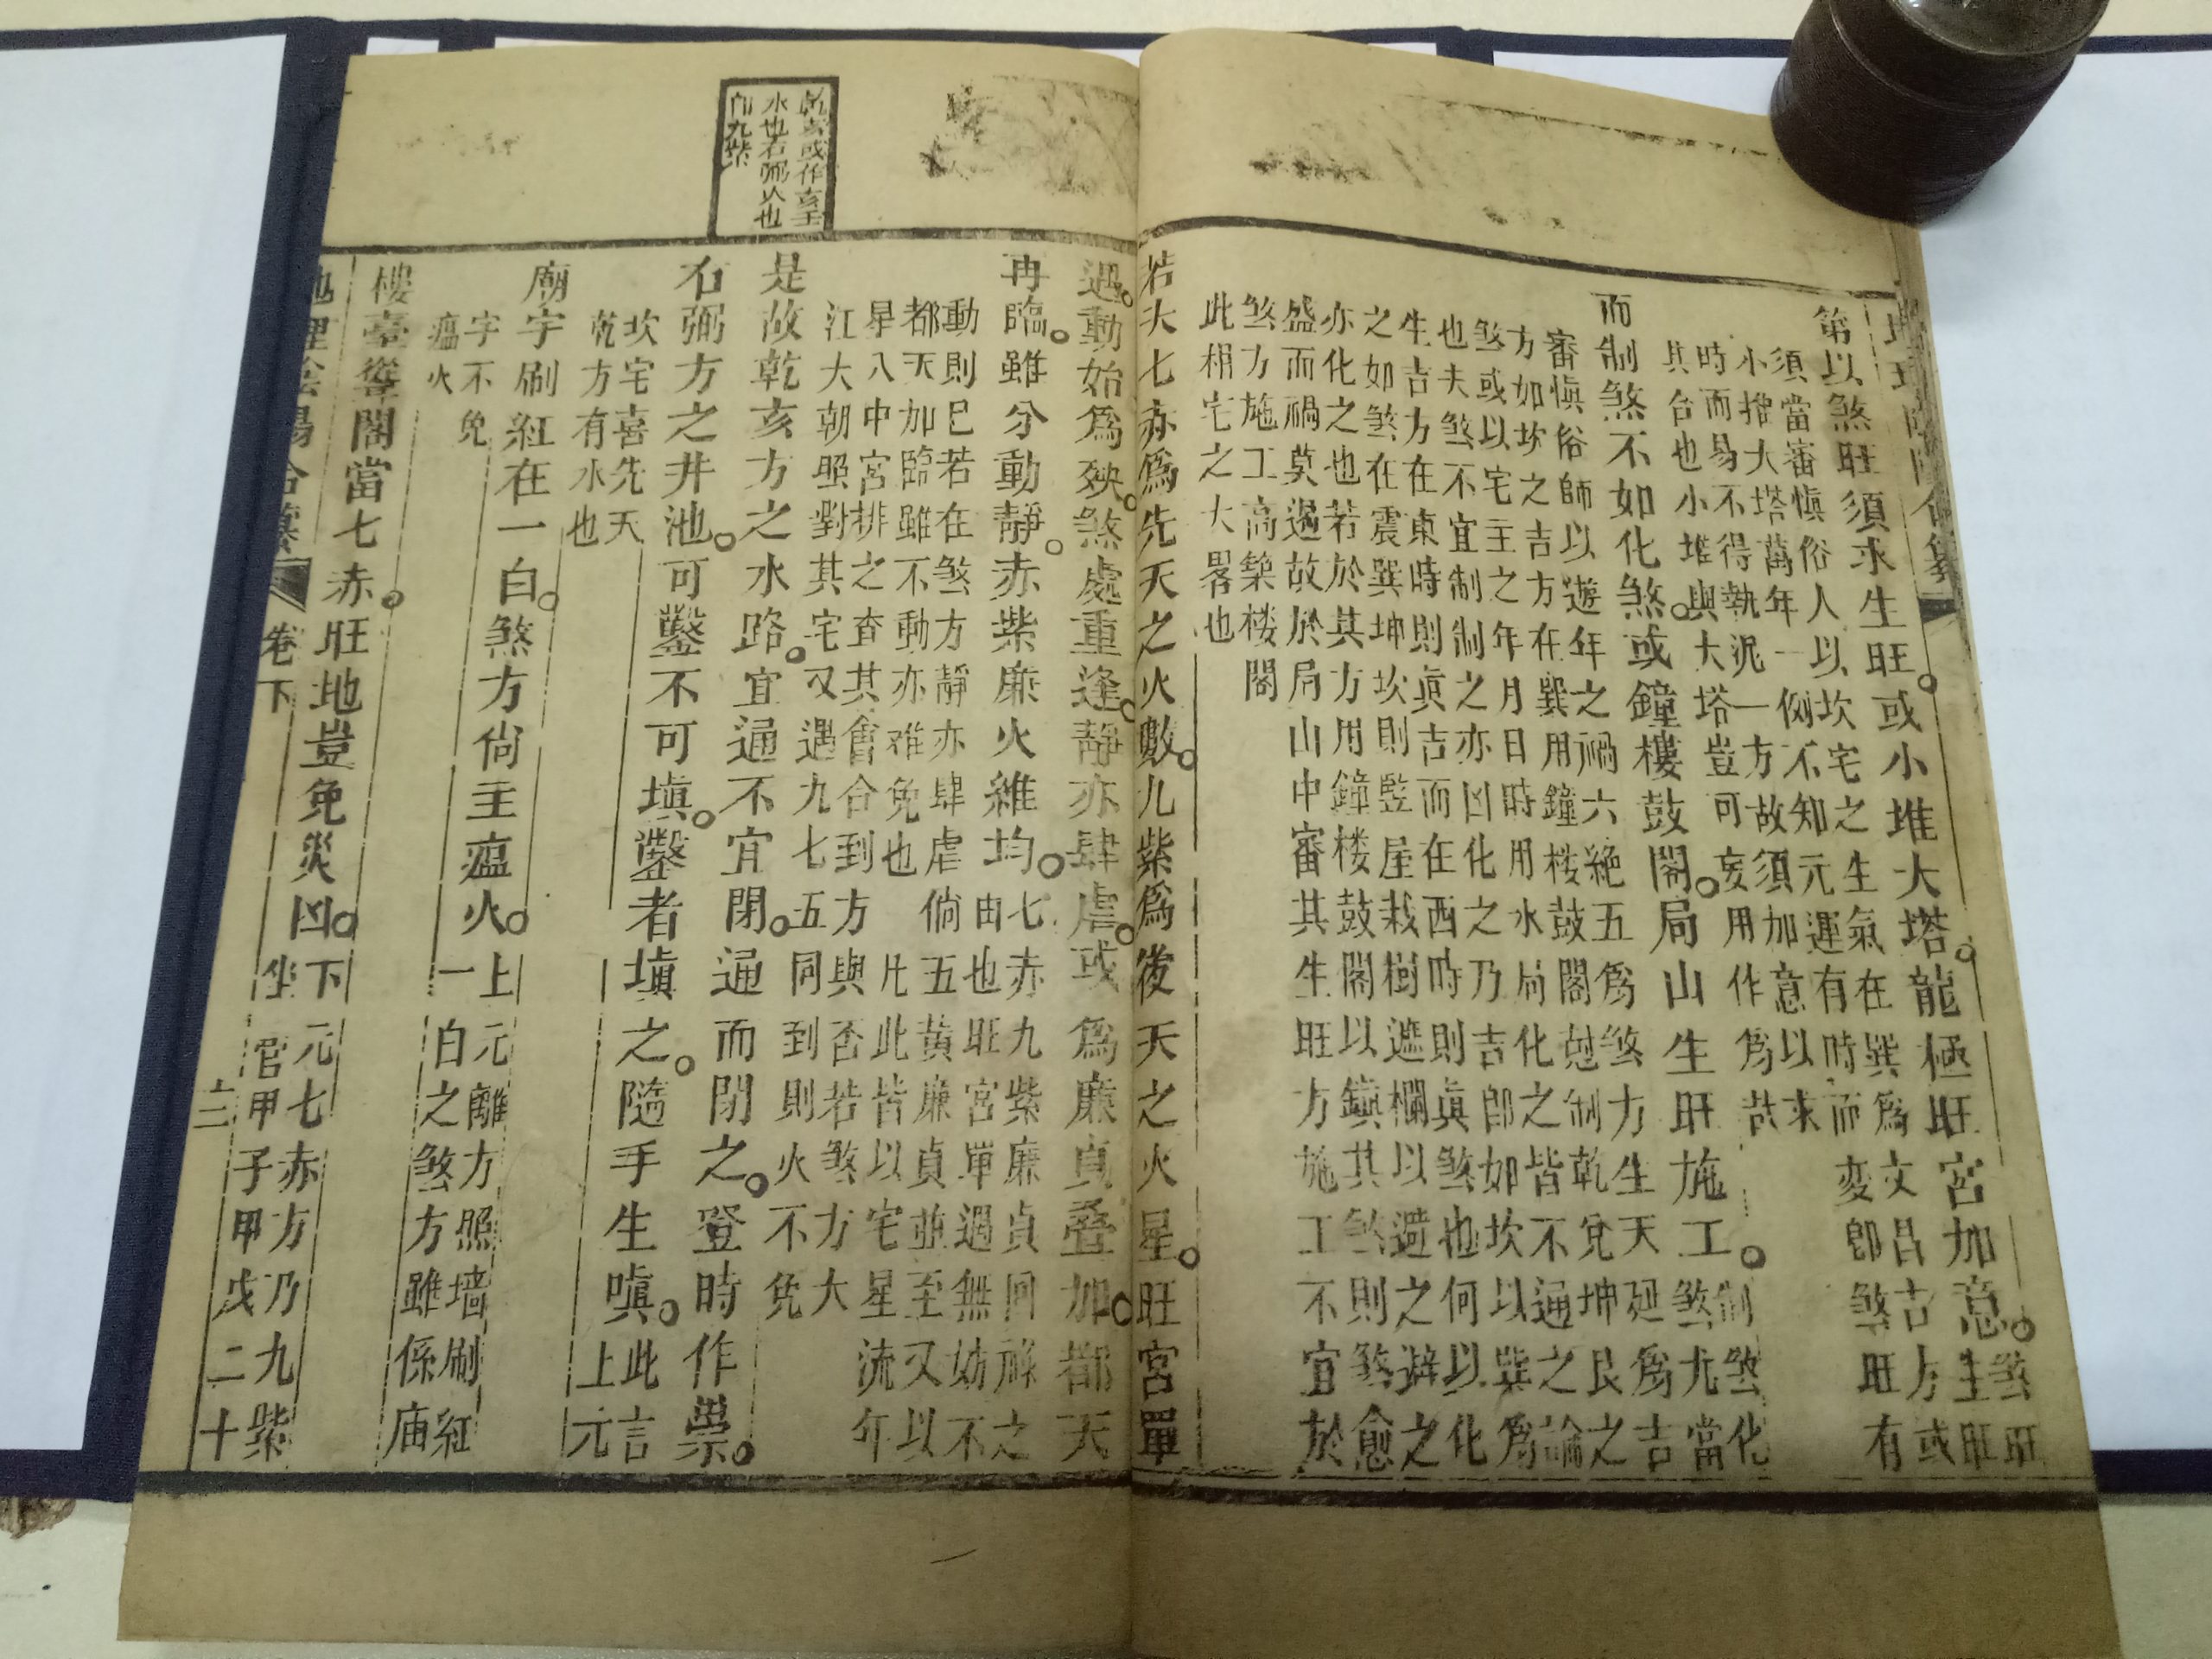 第以煞旺須求生旺。或小堆大塔。龍極旺宮加意。煞旺
生旺
須當審慎俗人以坎宅之生氣在巽爲文昌吉方或
小堆大塔萬年一例不知元運有時而变卽煞旺有
時而易不得執泥一方故須加意以求
其合也小堆與大塔豈可妄用作爲哉
而制煞不如化煞。或鐘樓鼓閣。局山生旺施工。制煞化
煞尤當
審愼俗師以遊年之禍六絶五爲煞方生天延爲吉
方如坎之吉方在巽用鐘楼鼓閣尅制乾兌坤艮之
煞或以宅主之年月日時用水局化之皆不通之論
也夫煞不宜制制之亦凶化之乃吉卽如坎以巽爲
生吉方在東時則眞吉而在西時則眞煞也何以化
之如煞在震巽坤坎則竪屋栽樹遮欄以遮之避之
亦化之也若於其方用鐘楼鼓閣以鎮其煞則煞愈
盛而禍莫過故於局山中審其生旺方施工不宜於
煞方施工高築楼閣
此相宅之大畧也
若夫七赤爲先天之火數。九紫爲後天之火星。旺宮單
遇。動始爲殃。煞處重逢。靜亦肆虐。或爲廉貞叠加。都天
再臨。雖分動靜。赤紫廉火維均。七赤九紫廉貞囘祿之
由也旺宮單遇無妨不
動則已若在煞方靜亦肆虐倘五黄廉貞並至又以
都天加臨雖不動亦难免也 凡此皆以宅星流年
星八中宮排之查其會合到方與否若煞方大
江大朝照對其宅又遇九七五同到則火不免
乾亥或作亥壬
水也右弼火也
卽九紫
是故乾亥方之水路。宜通不宜閉。通而閉之。登時作祟。
右弼方之井池。可鑿不可塡。鑿者塡之。隨手生嗔。此言
上元
坎宅喜先天
乾方有水也
廟宇刷紅在一白。煞方尙主瘟火。上元離方照墙刷紅
一白之煞方雖係庙
字不免
瘟火
樓臺聳閣當七赤。旺地豈免災凶。下元七赤方乃九紫
坐宮甲子甲戌二十
地理陰陽合纂 卷下 十三